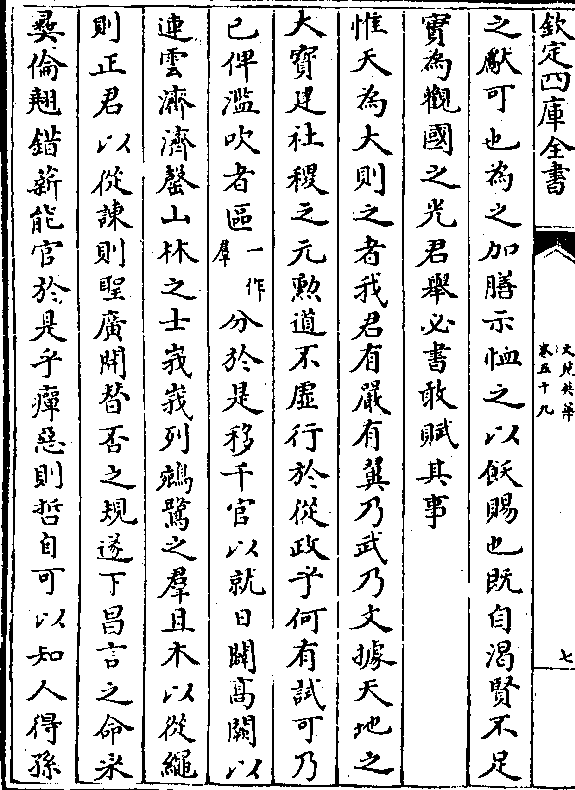 欽定四庫全書
文苑英華
卷五十九
七
之獻可也為之加膳示恤之以飫賜也既自渴賢不足
實為觀國之光君舉必書敢賦其事
惟天為大則之者我君有嚴有翼乃武乃文據天地之
大寶建社稷之元勲道不虛行於從政乎何有試可乃
已俾濫吹者區一作羣分於是移千官以就日闢高闕以
連雲濟濟罄山林之士峩峩列鵷鷺之羣且木以從繩
則正君以從諌則聖廣開替否之規遂下昌言之命求
彛倫翹錯薪能官於是乎癉惡則哲自可以知人得孫